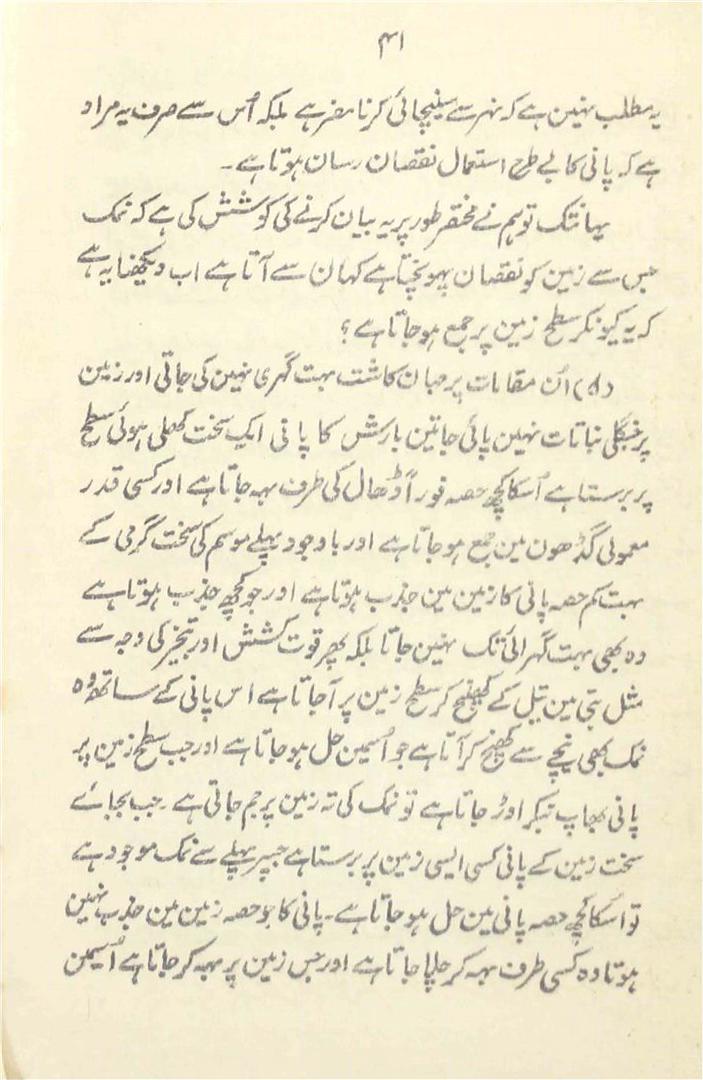 ۴۱
یہ مطلب نہین ہے کہ نہر سے سینچائی کرنا مضر ہے بلکہ اُس سے صرف یہ مراد
ہے کہ پانی کا بے طرح استعمال نقصان رسان ہوتا ہے۔
یہانتک تو ہم نے مختصر طور پر یہ بیان کرنے کی کوشش کی ہے کہ نمک
جس سے زمین کو نقصان پہونچتا ہے کہان سے آتا ہے اب دیکھنا یہ ہے
کہ یہ کیونکر سطح زمین پر جمع ہو جاتا ہے؟
اُن مقامات پر جہان کاشت بہت گہری نہین کی جاتی اور زمین
پر جنگلی نباتات نہین پائی جاتین بارش کا پانی ایک سخت کھلی ہوئی سطح
پر برستا ہے اُسکا کچھ حصہ فوراً ڈھال کی طرف بہہ جاتا ہے اور کسی قدر
معمولی گڈھون مین جمع ہو جاتا ہے اور باوجود پہلے موسم کی سخت گرمی کے
بہت کم حصہ پانی کا زمین مین جذب ہوتا ہے اور جو کچھ جذب ہوتا ہے
وہ بھی بہت گہرائی تک نہین جاتا بلکہ پھر قوت کشش اور تبخیر کی وجہ سے
مثل بتی مین تیل کے کھینچ کر سطح زمین پر آ جاتا ہے اس پانی کے ساتھ وہ
نمک بھی نیچے سے کھینچ کر آتا ہے جو اُسمین حل ہو جاتا ہے اور جب سطح زمین پر
پانی بھاپ بنکر اوڑ جاتا ہے تو نمک کی تہ زمین پر جم جاتی ہے۔ جب بجائے
سخت زمین کے پانی کسی ایسی زمین پر برستا ہے جسپر پہلے سے نمک موجود ہے
تو اُسکا کچھ حصہ پانی مین حل ہو جاتا ہے۔ پانی کا جو حصہ زمین مین جذب نہین
ہوتا وہ کسی طرف بہہ کر چلا جاتا ہے اور جس زمین پر بہہ کر جاتا ہے اُسیمن